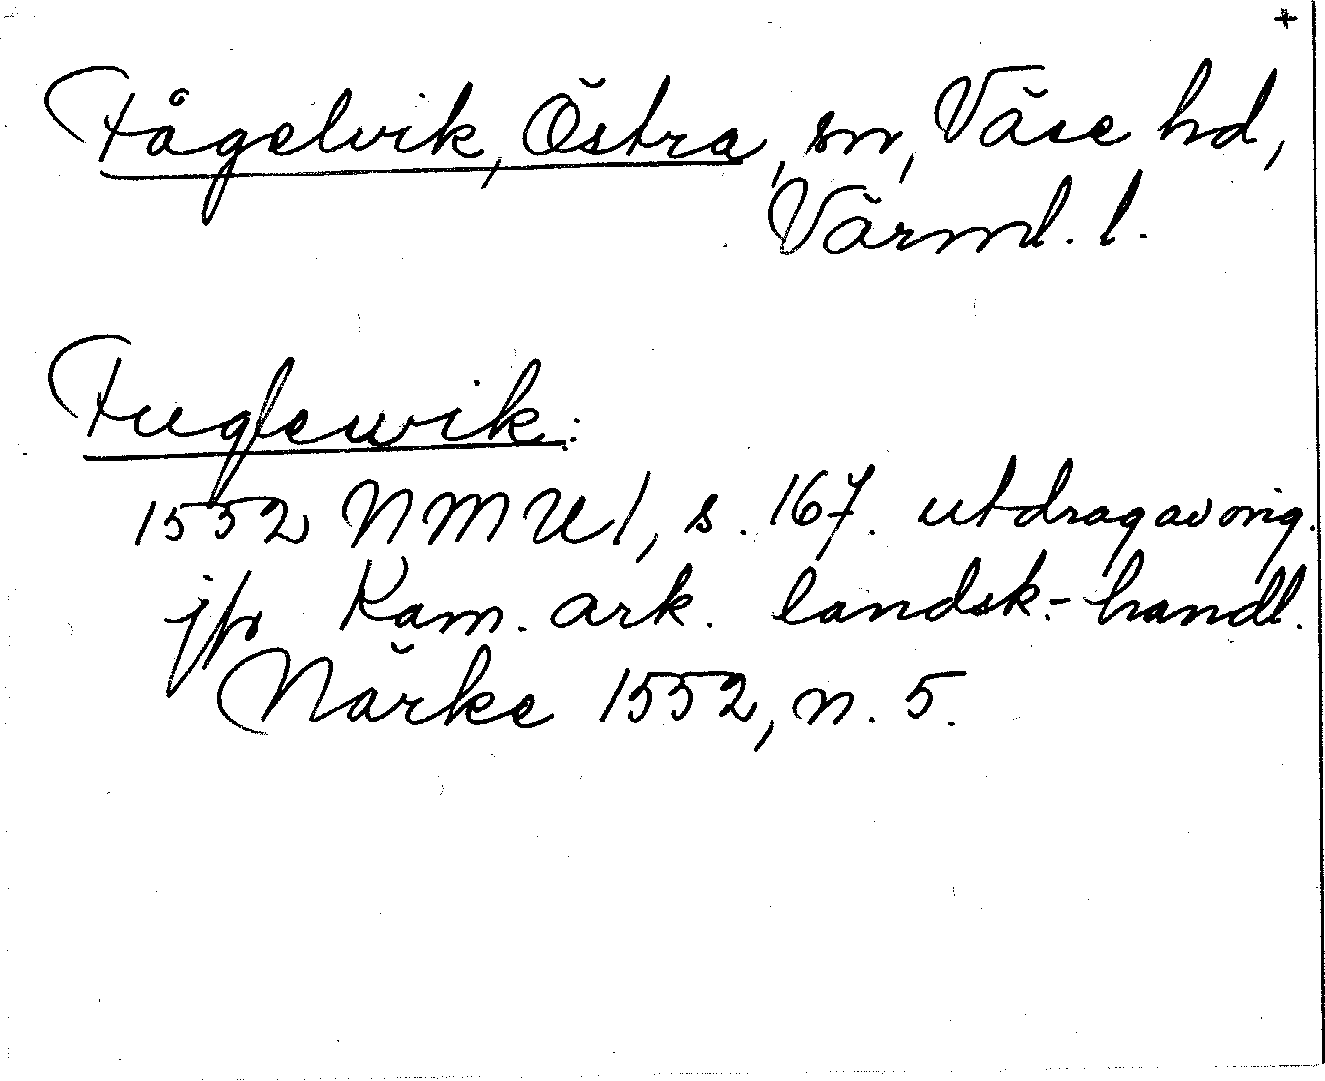 +
Fågelvik, Östra, sn, Väse hd,
Värml. l.
Fuglewik:
1552 NMU 1, s. 167. utdrag av orig.
jfr Kam. ark. landsk.-handl.
Närke 1552, n. 5.